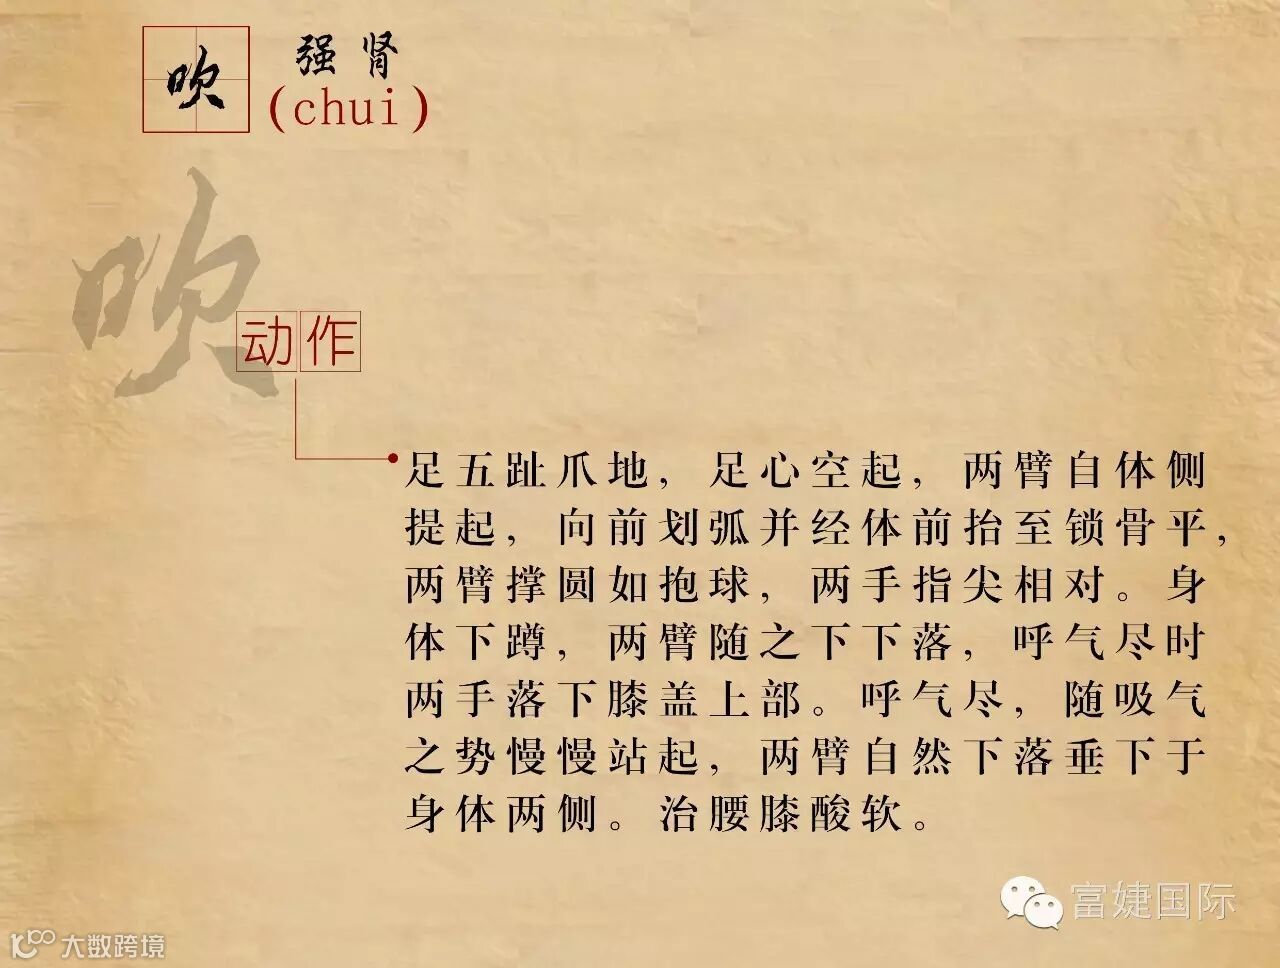 吹
强肾
(chui)
吹
动作
足五趾爪地，足心空起，两臂自体侧
提起，向前划弧并经体前抬至锁骨平，
两臂撑圆如抱球，两手指尖相对。身
体下蹲，两臂随之下下落，呼气尽时
两手落下膝盖上部。呼气尽，随吸气
之势慢慢站起，两臂自然下落垂下于
身体两侧。治腰膝酸软。
富婕国际
大数跨境